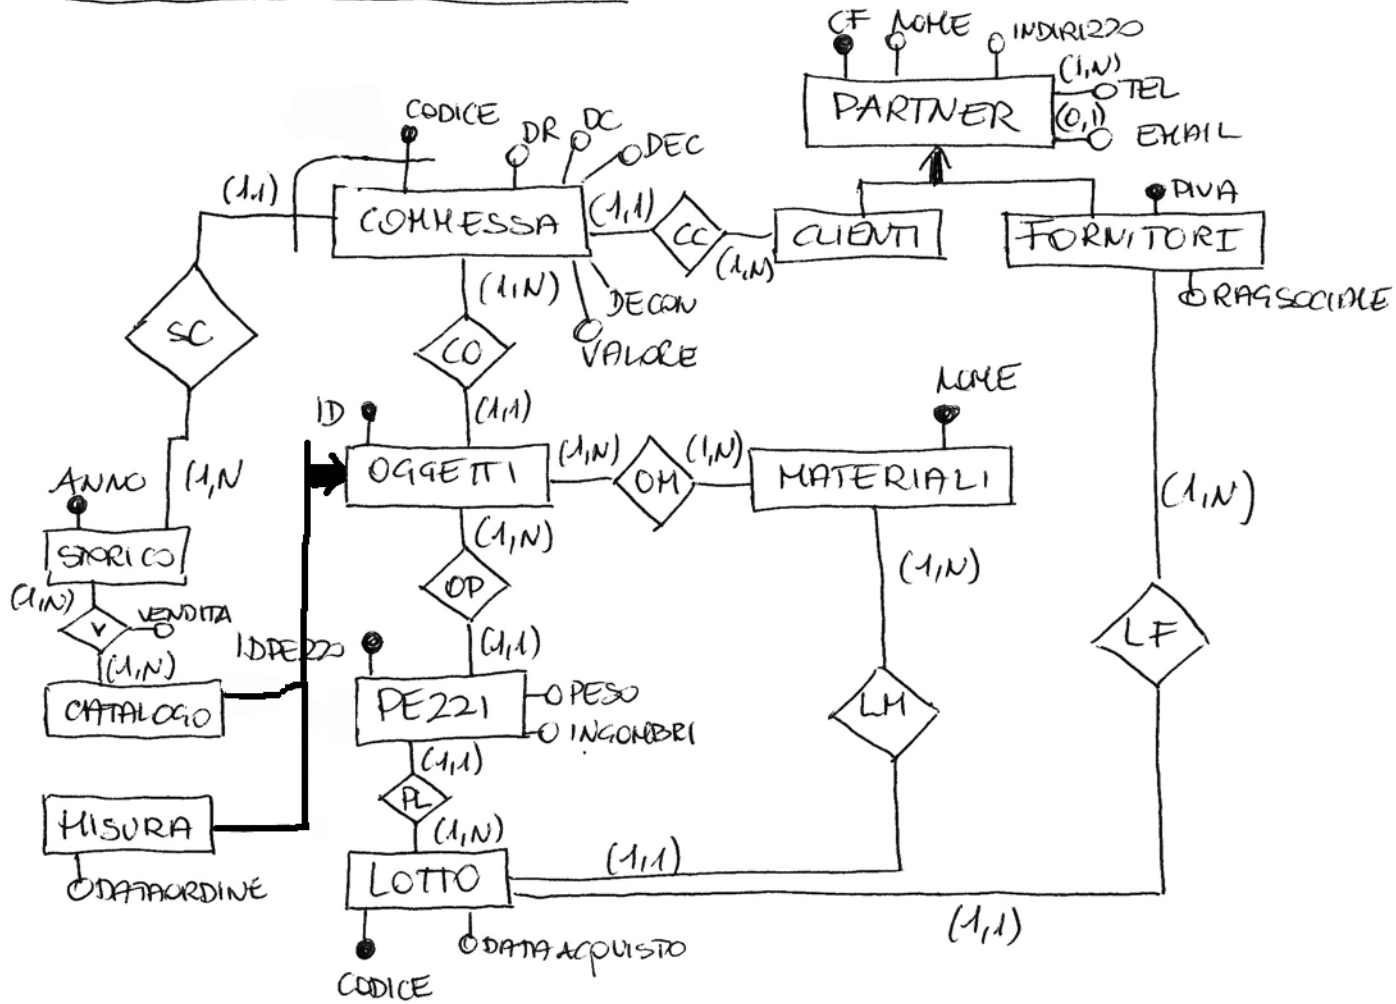 CF NOME INDIRIZZO
(1,N)
TEL
PARTNER
(0,1)
EMAIL
CODICE
DR
DC
DEC
(1,1)
COMMESSA
(1,1)
CC
(1,N)
CLIENTI
PIVA
FORNITORI
RAGSOCIALE
(1,N)
DECON
VALORE
SC
CO
(1,1)
NOME
ID
OGGETTI
(1,N)
OM
(1,N)
MATERIALI
ANNO
(1,N
STORICO
(1,N)
V
VENDITA
(1,N)
CATALOGO
(1,N)
OP
(1,1)
IDPEZZO
PEZZI
PESO
INGOMBRI
(1,N)
LM
(1,N)
LF
MISURA
DATAORDINE
(1,1)
PL
(1,N)
LOTTO
(1,1)
(1,1)
CODICE
DATAACQUISTO